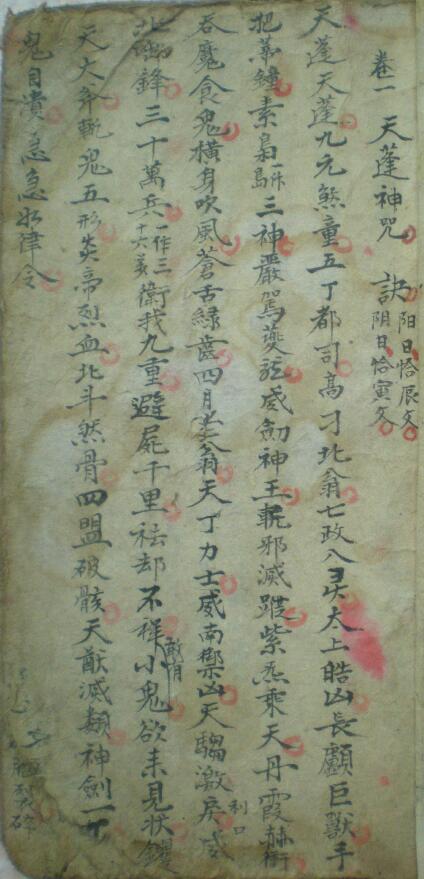 卷一 天蓬神咒 訣 阳日恰辰文 阴日恰寅文
天蓬天蓬九元煞童五丁都司高刁北翁七政八灵太上皓凶長顱巨獸手
把帝鐘素梟一作島三神嚴駕夔龍威劍神王斬邪滅踪紫炁乘天丹霞赫衝
吞魔食鬼橫身吹風蒼舌綠齒四目老翁天丁力士威南禦凶天騶激戾威
北啣鋒三十萬兵一作三十六萬衛我九重避屍千里祛却不祥小鬼欲来見状钁
天大斧斬鬼五形炎帝烈血北斗煞骨四盟破骸天猷滅類神劍一下
鬼自潰急急如律令
利口